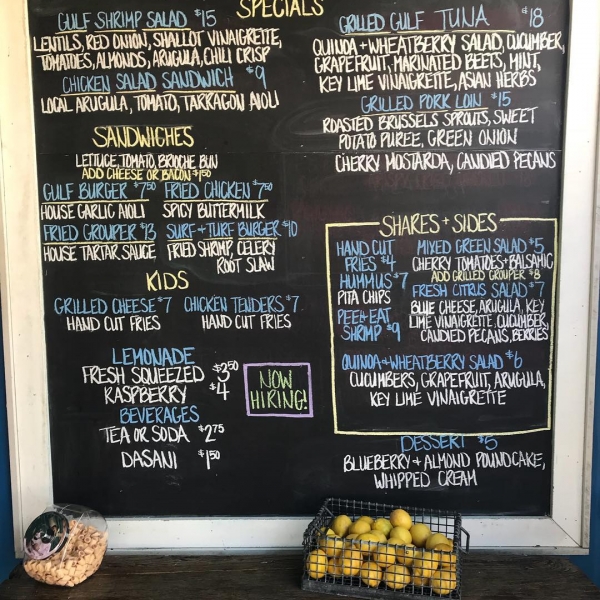 SPECIALS
GULF SHRIMP SALAD $15
LENTILS, RED ONION, SHALLOT VINAIGRETTE,
TOMATOES, ALMONDS, ARUGULA, CHILI CRISP
CHICKEN SALAD SANDWICH $9
LOCAL ARUGULA, TOMATO, TARRAGON AIOLI
GRILLED GULF TUNA $18
QUINOA + WHEATBERRY SALAD, CUCUMBER,
GRAPEFRUIT, MARINATED BEETS, MINT,
KEY LIME VINAIGRETTE, ASIAN HERBS
GRILLED PORK LOIN $15
ROASTED BRUSSELS SPROUTS, SWEET
POTATO PUREE, GREEN ONION
CHERRY MOSTARDA, CANDIED PECANS
SANDWICHES
LETTUCE, TOMATO, BRIOCHE BUN
ADD CHEESE OR BACON $1.50
GULF BURGER $7.50
HOUSE GARLIC AIOLI
FRIED CHICKEN $7.50
SPICY BUTTERMILK
FRIED GROUPER $13
HOUSE TARTAR SAUCE
SURF + TURF BURGER $10
FRIED SHRIMP, CELERY
ROOT SLAW
KIDS
GRILLED CHEESE $7
HAND CUT FRIES
CHICKEN TENDERS $7
HAND CUT FRIES
LEMONADE
FRESH SQUEEZED $3.50
RASPBERRY $4
BEVERAGES
TEA OR SODA $2.75
DASANI $1.50
NOW
HIRING!
SHARES + SIDES
HAND CUT
FRIES $4
HUMMUS $7
PITA CHIPS
PEEL + EAT
SHRIMP $9
MIXED GREEN SALAD $5
CHERRY TOMATOES + BALSAMIC
ADD GRILLED GROUPER $8
FRESH CITRUS SALAD $7
BLUE CHEESE, ARUGULA, KEY
LIME VINAIGRETTE, CUCUMBER,
CANDIED PECANS, BERRIES
QUINOA + WHEATBERRY SALAD $6
CUCUMBERS, GRAPEFRUIT, ARUGULA,
KEY LIME VINAIGRETTE
DESSERT $5
BLUEBERRY + ALMOND POUNDCAKE,
WHIPPED CREAM